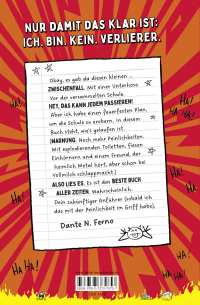 NUR DAMIT DAS KLAR IST:
ICH. BIN. KEIN. VERLIERER.
Okay, es gab da diesen kleinen ...
ZWISCHENFALL. Mit einer Unterhose.
Vor der versammelten Schule.
HEY, DAS KANN JEDEM PASSIEREN!
Aber ich habe einen feuerfesten Plan,
um die Schule zu erobern. In diesem
Buch steht, wie's gelaufen ist.
(WARNUNG: Noch mehr Peinlichkeiten.
Mit explodierenden Toiletten, fiesen
Einhörnern und einem Freund, der
heimlich Metal hört, aber schon bei
Vollmilch schlappmacht.)
ALSO LIES ES. Es ist das BESTE BUCH
ALLER ZEITEN. Wahrscheinlich.
Dein zukünftiger Anführer (sobald ich
das mit der Peinlichkeit im Griff habe),
Dante N. Ferno
HA!
HA!
HA!
HA!
HA!
HA HA!
HA!
HA!